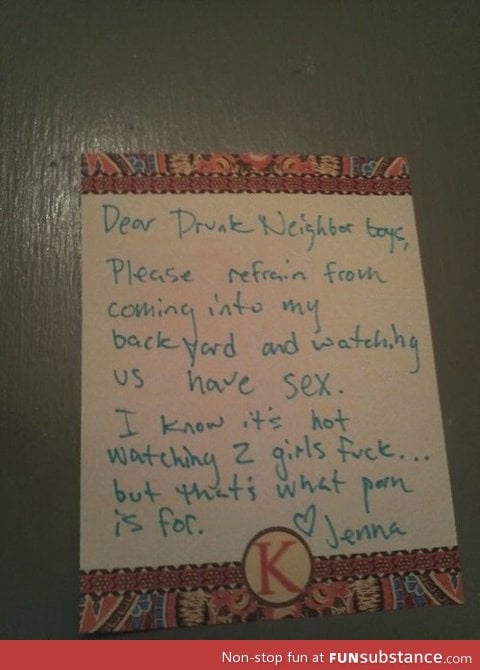 Dear Drunk Neighbor boys,
Please refrain from
coming into my
back yard and watching
us have sex.
I know it's hot
watching 2 girls fuck...
but that's what porn
is for. ♡ Jenna
K
Non-stop fun at FUNsubstance.com